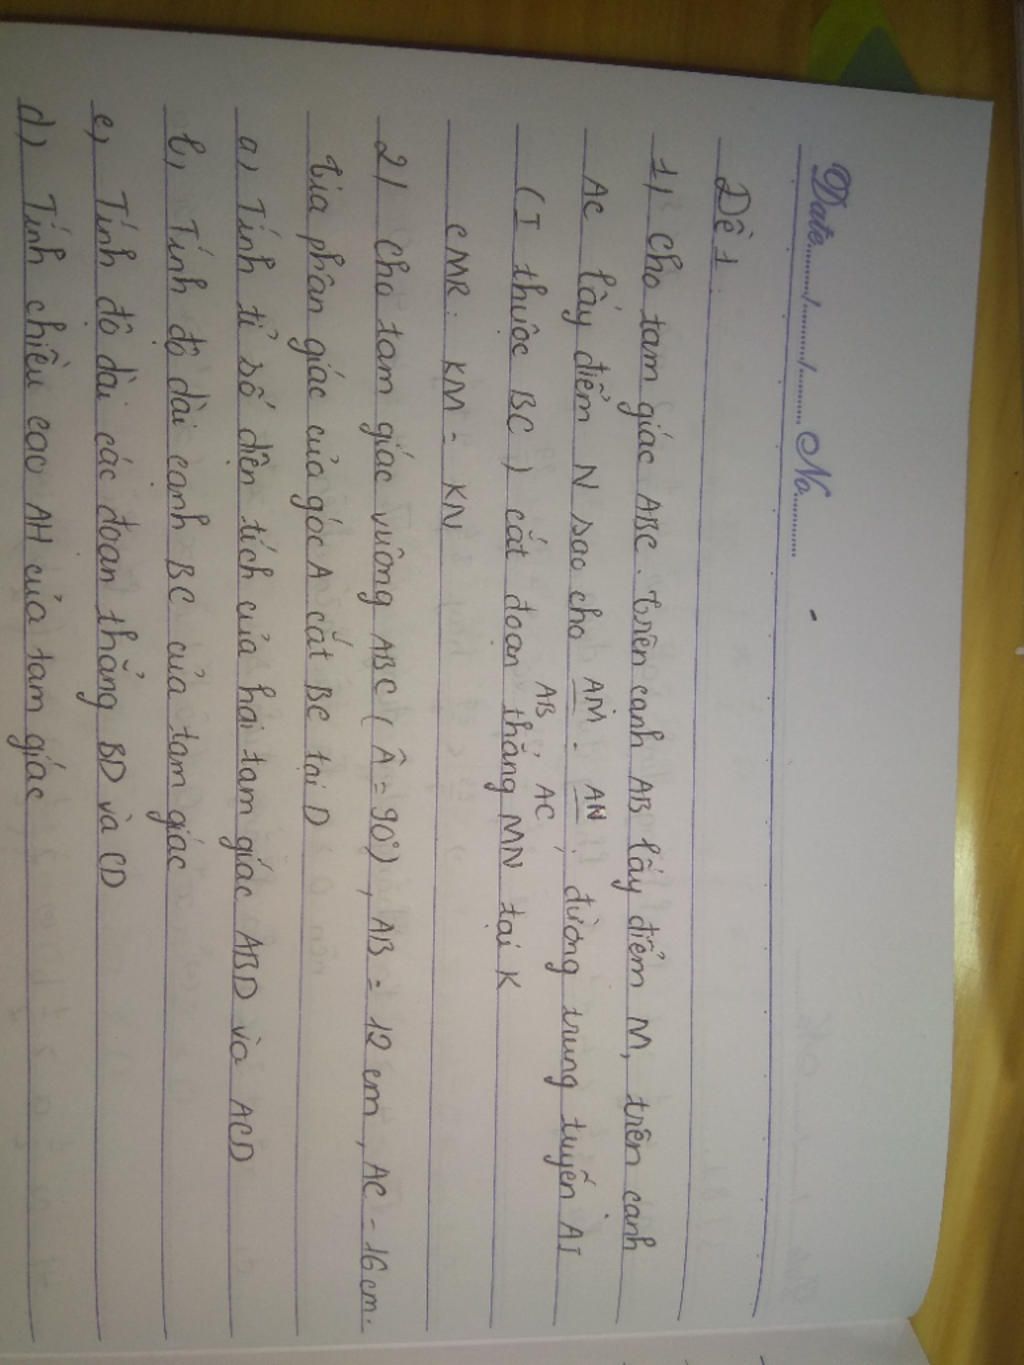 Date......./......./....... No............
Đề 1:
1, Cho tam giác ABC. Trên cạnh AB lấy điểm M, trên cạnh
AC lấy điểm N sao cho AM/AB = AN/AC, đường trung tuyến AI
(I thuộc BC) cắt đoạn thẳng MN tại K
CMR: KM = KN
2, Cho tam giác vuông ABC (Â = 90°), AB = 12 cm, AC = 16 cm.
Tia phân giác của góc A cắt BC tại D
a, Tính tỉ số diện tích của hai tam giác ABD và ACD
b, Tính độ dài cạnh BC của tam giác
c, Tính độ dài các đoạn thẳng BD và CD
d, Tính chiều cao AH của tam giác